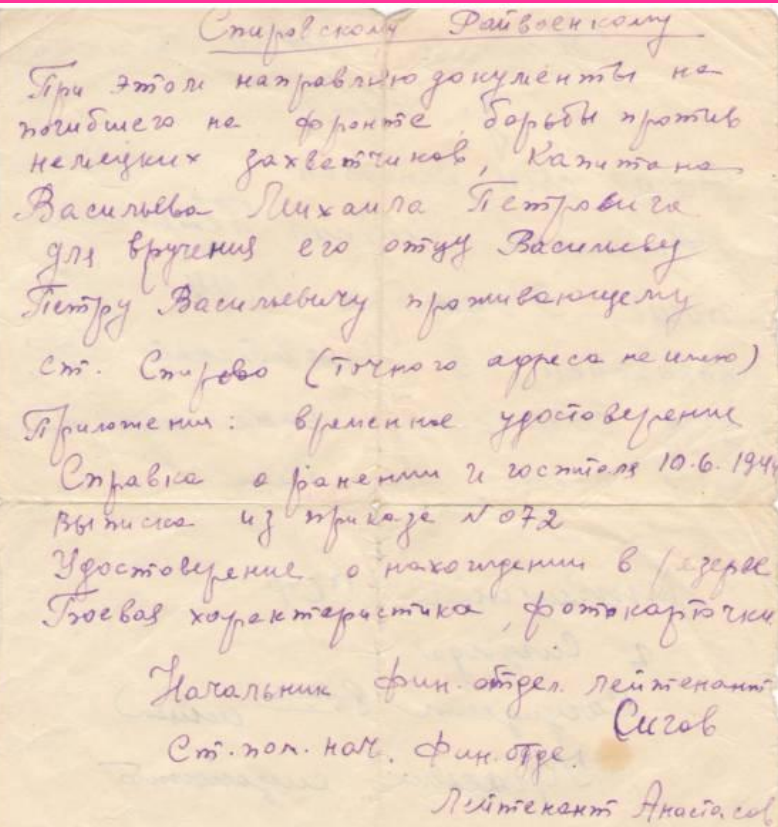 Спировскому Райвоенкому
При этом направляю документы на
погибшего на фронте борьбы против
немецких захватчиков, Капитана
Васильева Михаила Петровича
для вручения его отцу Васильеву
Петру Васильевичу проживающему
ст. Спирово (точного адреса не имею)
Приложения: временное удостоверение
Справка о ранении и госпиталя 10.6.194
выписка из приказа № 072
Удостоверение о нахождении в резерве
Боевая характеристика, фотокарточки
Начальник фин. отдел. лейтенант
Сигов
Ст. пом. нач. фин. отде.
Лейтенант Анастасов